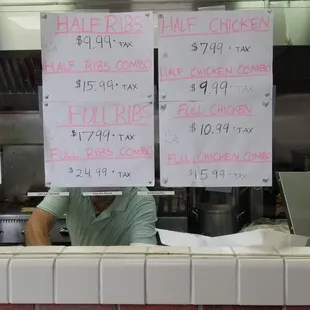 HALF RIBS
$9.99 + TAX
HALF RIBS COMBO
$15.99 + TAX
FULL RIBS
$17.99 + TAX
FULL RIBS COMBO
$24.99 + TAX
HALF CHICKEN
$7.99 + TAX
HALF CHICKEN COMBO
$9.99 + TAX
FULL CHICKEN
$10.99 + TAX
FULL CHICKEN COMBO
$15.99 + TAX